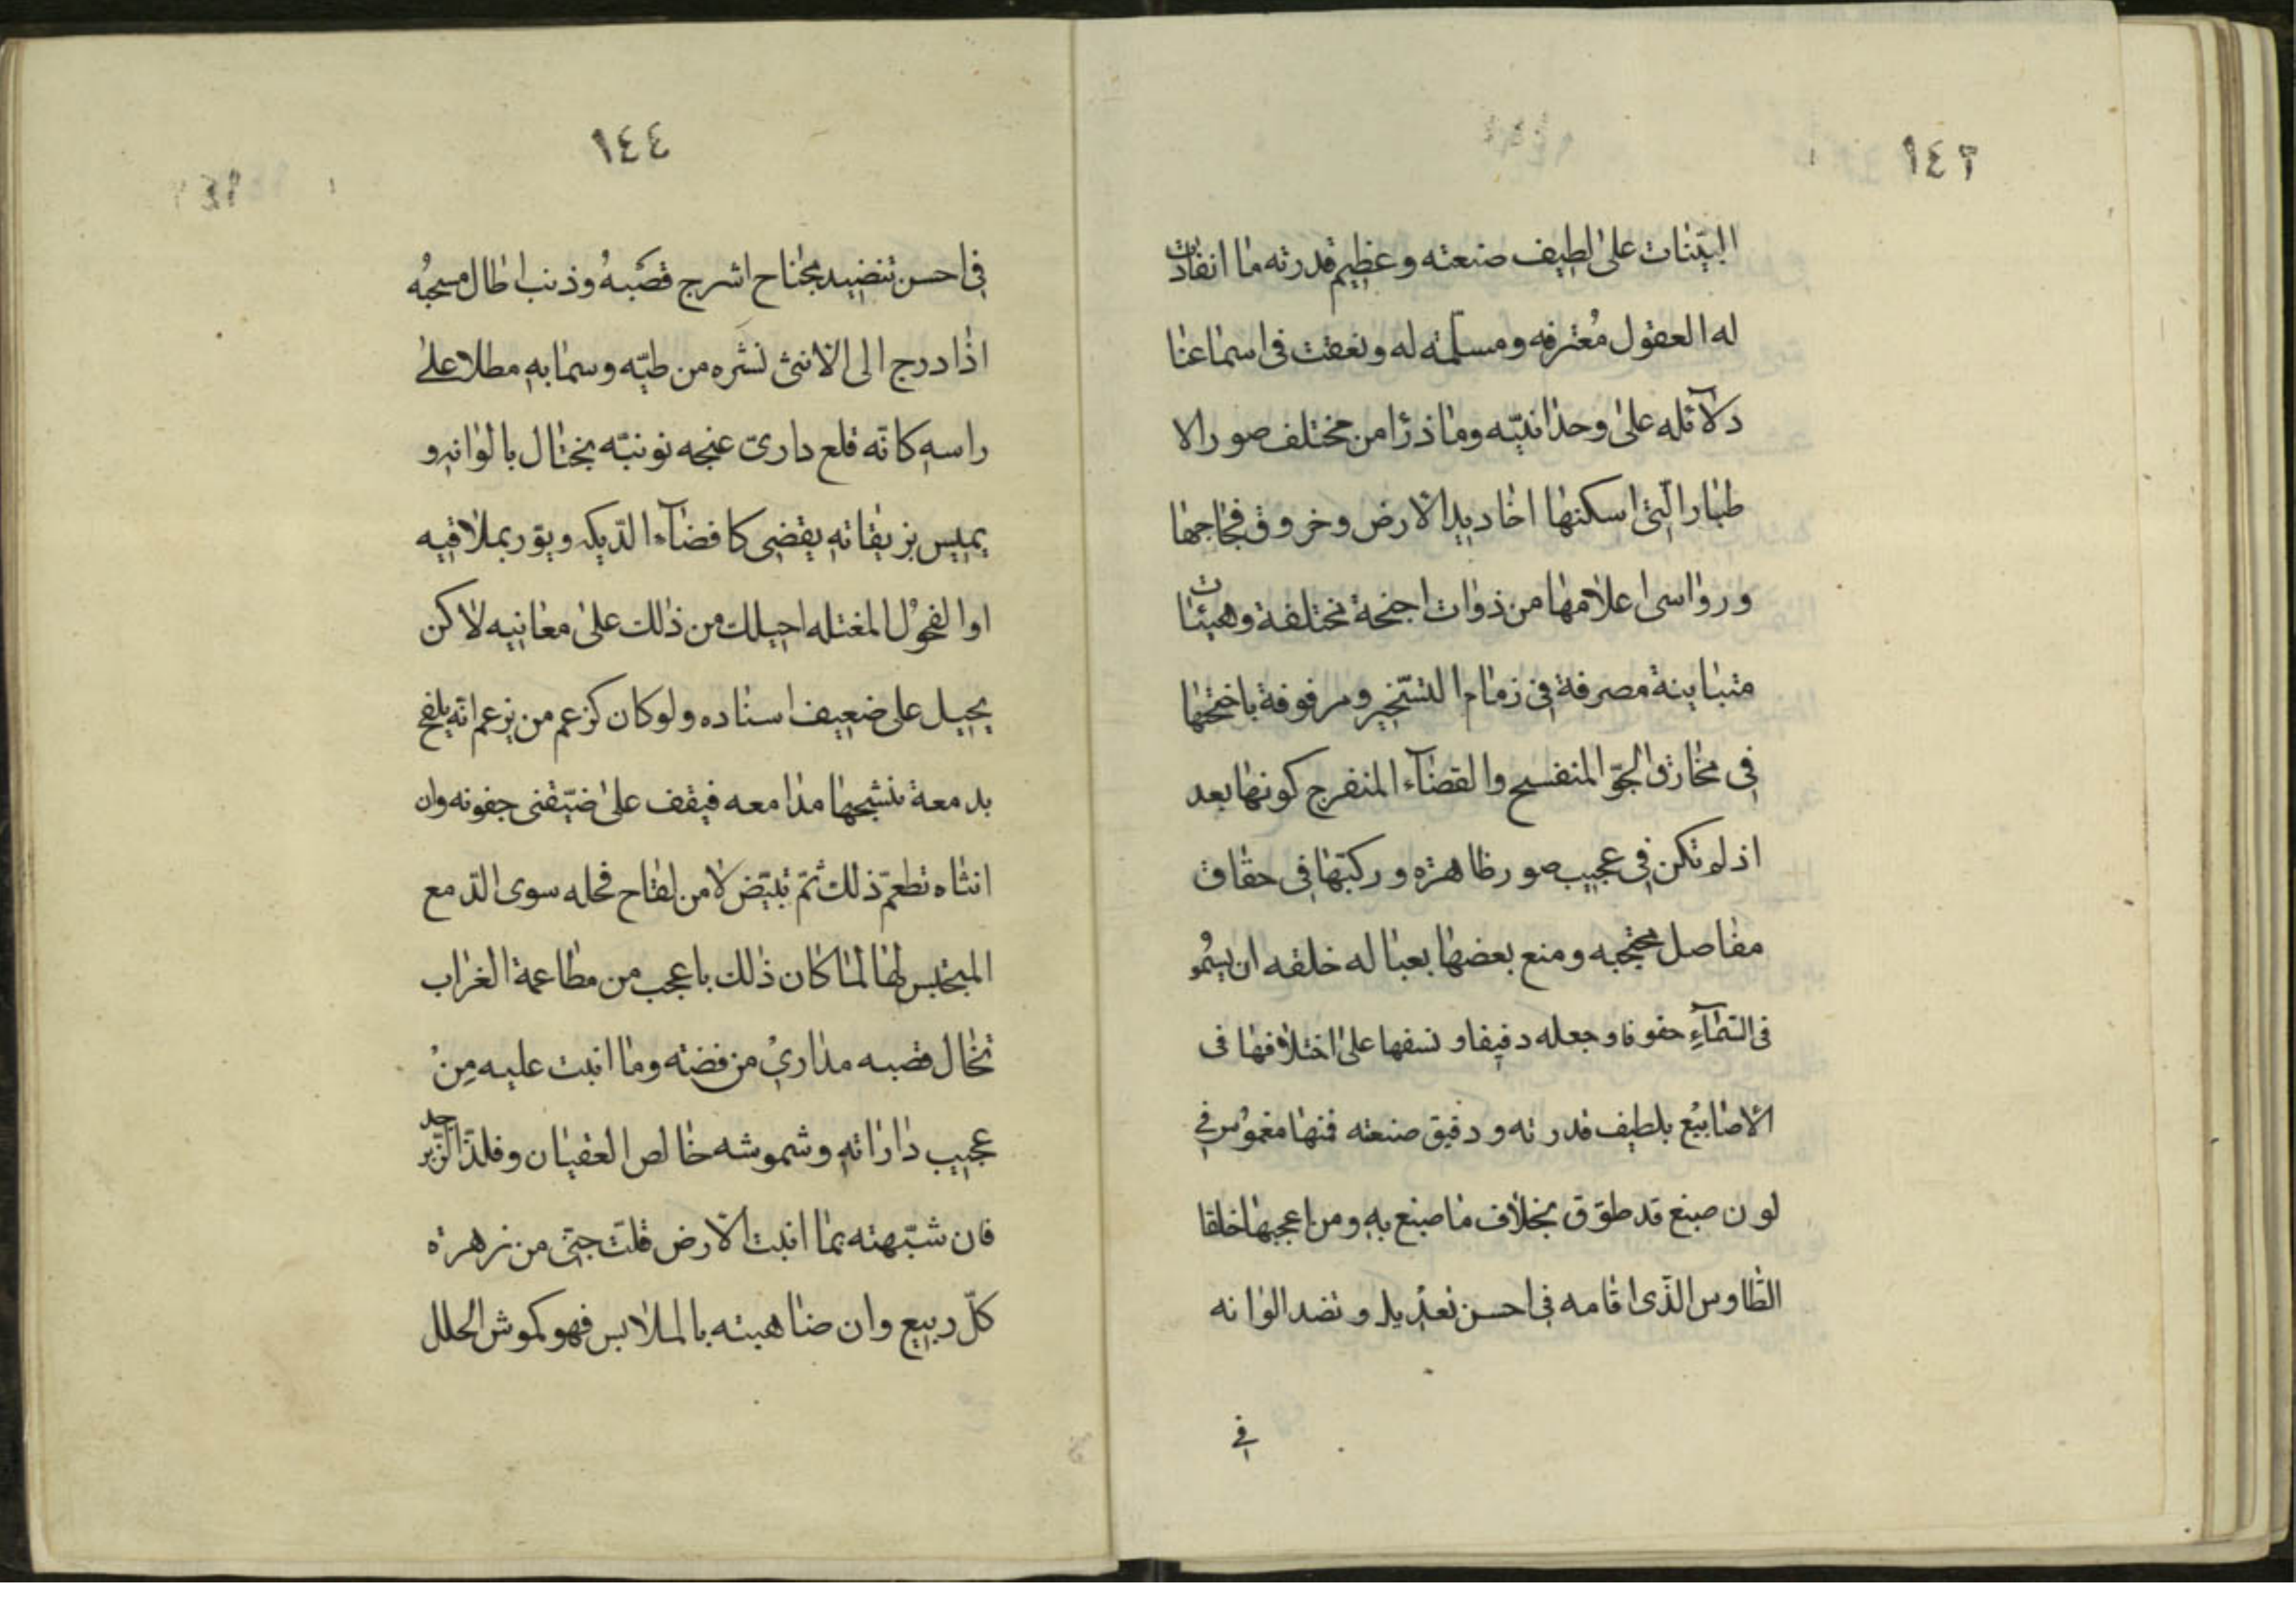 ١٤٣
البيّنات على لطيف صنعته وعظيم قدرته ما انقادت
له العقول مُعترفه ومسلمة له ونعقت فى اسماعنا
دلآئله على وحدانيّته وماذرٔا من مختلف صور الا
طيار الّتى اسكنها اخاديد الارض وخروق فجاجها
ورواسى اعلامها من ذوات اجنحة مختلفة وهيئات
متباينة مصرفة فى زمام التسّخير ومرفوفة باجنحتها
فى مخارق الجوّ المنفسح والفضآء المنفرج كونها بعد
اذ لم تكن فى عجيب صور ظاهرة وركبّها فى حقاق
مفاصل محتجبه ومنع بعضها بعباله خلقه ان يسمُو
فى السّمآءِ حفوفا وجعله دفيفا و نسقها على اختلافها فى
الاصابيُع بلطيف قدرته ودقيق صنعته فمنها مغموُس فى
لون صبغ قد طوّق بخلاف ما صبغ به ومن اعجبها خلقا
الطّاوس الّذى اقامه فى احسن تعديل و نضد الوانه
فى
١٤٤
فى احسن تنضيد بجناح اشرج قصَبهُ وذنب اطال مسحبُه
اذا درج الى الانثى نشَره من طيّه وسما به مطلا على
راسه كانّه قلع دارىّ عنجه نوتيّه يختال بالوانه و
يميس بزيفانه يفضى كافضآء الدّيكه ويؤر بملاقيه
او الفحوُل المغتله احيلك من ذلك على معانيه لا كن
يحيل على ضعيف اسناده ولو كان كزعم من يزعم انّه يلقح
بدمعة تنشجها مدامعه فيقف على ضيّفتى جفونه وان
انثاه تطعّم ذلك ثمّ تبيّض لا من لقاح فحله سوى الدّمع
المبتجس لها لما كان ذلك باعجب من مطاعمة الغراب
تخال قصبه مدارىُ من فضته وما انبت عليه مِنْ
عجيب داراته وشموشه خالص العقيان وفلذ الزّبرجد
فان شبّهته بما انبت الارض قلت جنىّ من زهرة
كلّ ربيع وان ضاهيته بالملابس فهو كموش الحلل